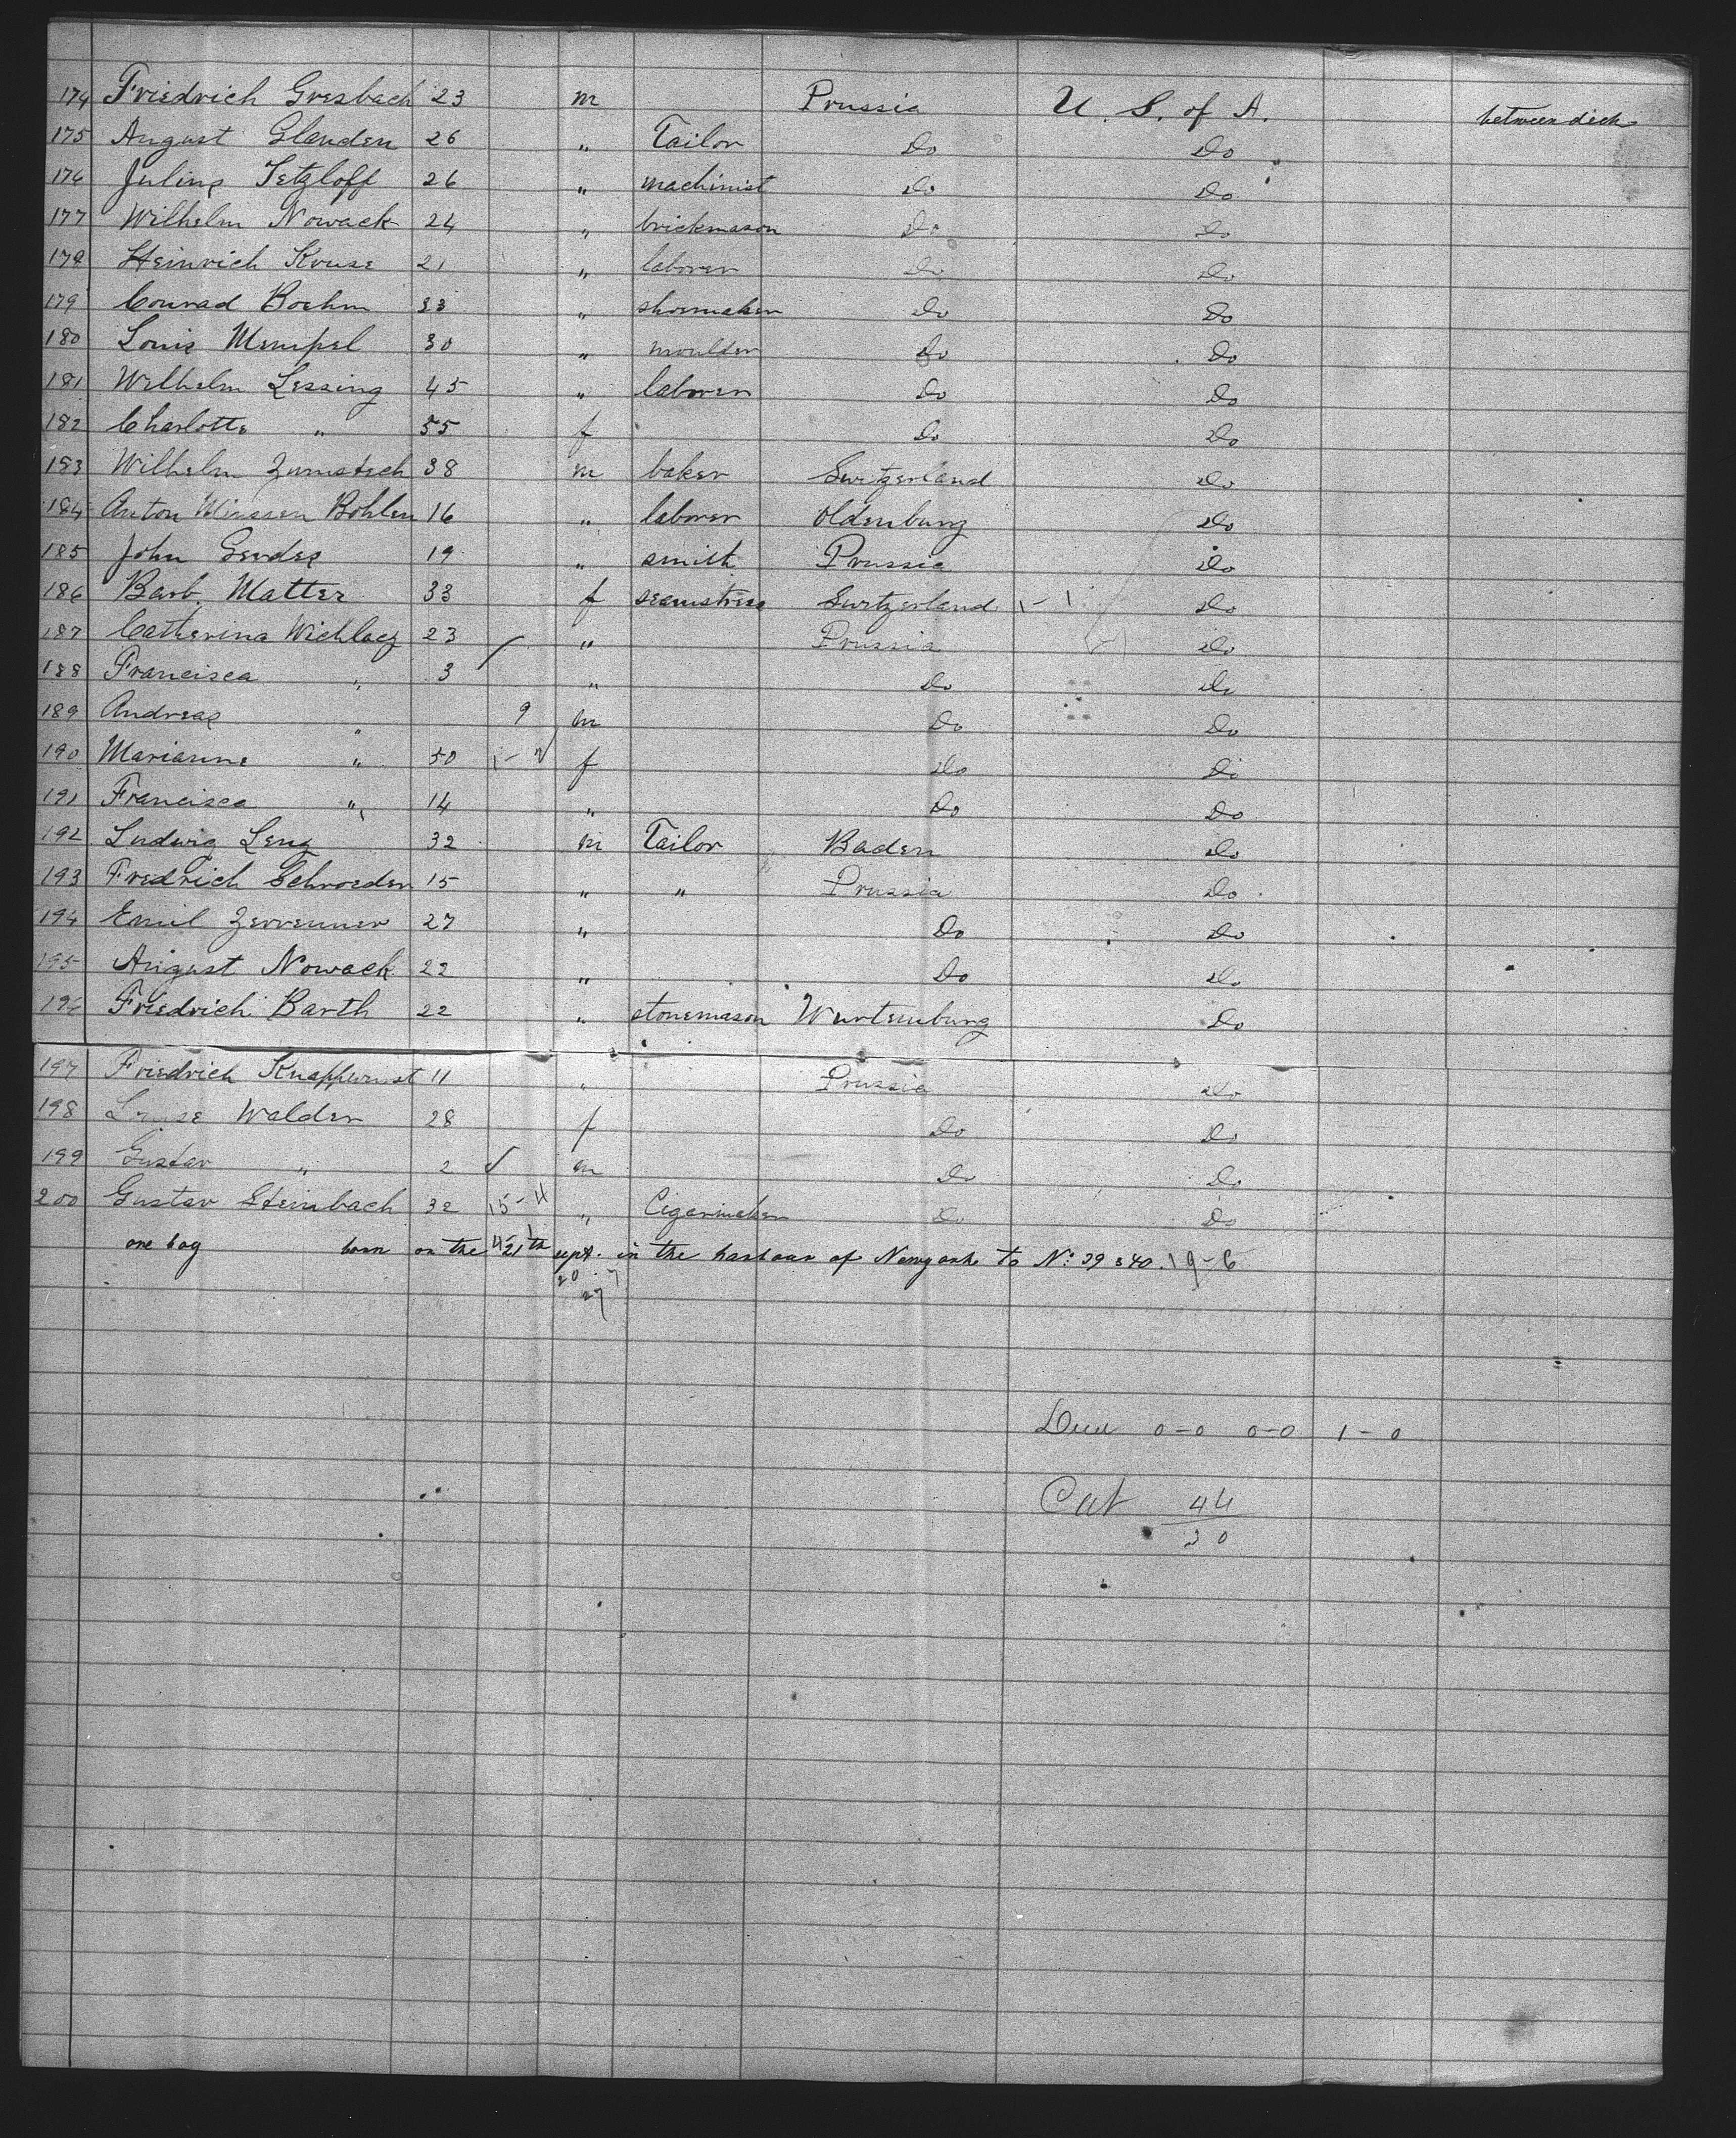 174 Friedrich Gresbach 23 m Prussia U. S. of A. between deck
175 August Glanden 26 " Tailor Do Do
176 Julius Tetzloff 26 " machinist Do Do
177 Wilhelm Nowack 24 " brickmason Do Do
178 Heinrich Kruse 21 " laborer Do Do
179 Conrad Boehm 33 " shoemaker Do Do
180 Louis Mempel 30 " moulder Do Do
181 Wilhelm Lessing 45 " laborer Do Do
182 Charlotte " 55 f Do Do
183 Wilhelm Zumstech 38 m baker Switzerland Do
184 Anton Bohlen 16 " laborer Oldenburg Do
185 John Gerdes 19 " smith Prussia Do
186 Barb. Matter 33 f seamstress Switzerland 1-1 Do
187 Catherina Wichlacz 23 " Prussia Do
188 Francisca " 3 " Do Do
189 Andreas " 9 m Do Do
190 Marianne " 50 f Do Do
191 Francisca " 14 " Do Do
192 Ludwig Leng 32 m Tailor Baden Do
193 Fredrich Schroeder 15 " " Prussia Do
194 Emil Zerrenner 27 " Do Do
195 August Nowack 22 " Do Do
196 Friedrich Barth 22 " stonemason Wurtemburg Do
197 Friedrich 11 " Prussia Do
198 Louise Walder 28 f Do Do
199 Gustav " 2 m Do Do
200 Gustav Steinbach 32 15-4 " Cigarmaker Do Do
one boy born on the 21th sept. in the harbour of Newyork to No: 39 & 40. 19-6
20 7
27
0-0 0-0 1-0
44
30